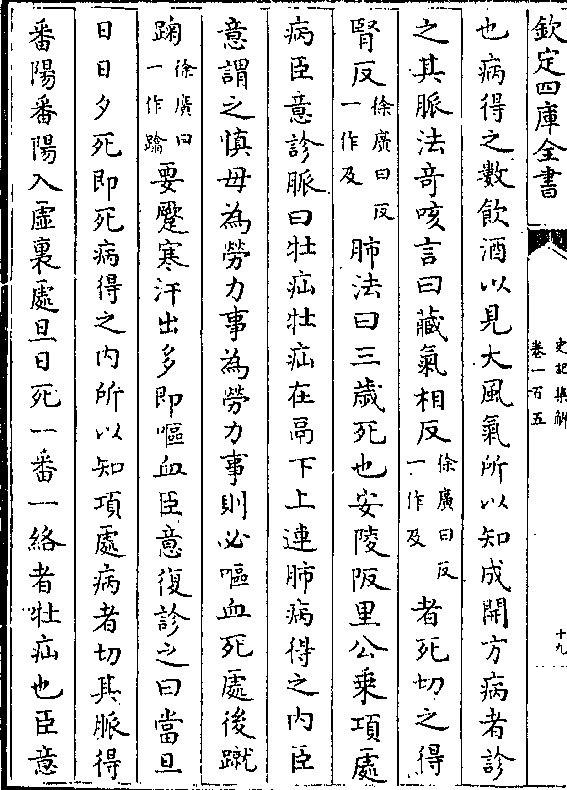 欽定四庫全書
史記集解
卷一百五
十九
也病得之數飲酒以見大風氣所以知成開方病者診
之其脈法奇咳言曰藏氣相反徐廣曰反一作及者死切之得
腎反徐廣曰反一作及肺法曰三歲死也安陵阪里公乘項處
病臣意診脈曰牡疝牡疝在鬲下上連肺病得之內臣
意謂之慎毋為勞力事為勞力事則必嘔血死處後蹴
踘徐廣曰一作蹹要蹷寒汗出多即嘔血臣意復診之曰當旦
日日夕死即死病得之內所以知項處病者切其脈得
番陽番陽入虛裏處旦日死一番一絡者牡疝也臣意